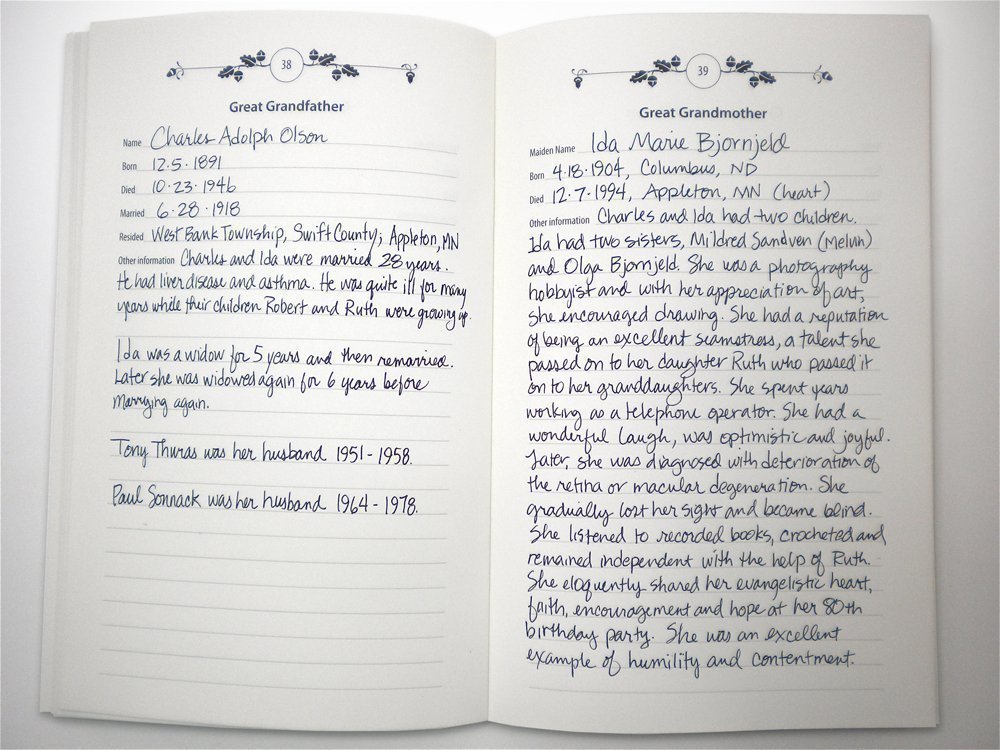 38
Great Grandfather
Name Charles Adolph Olson
Born 12·5·1891
Died 10·23·1946
Married 6·28·1918
Resided West Bank Township, Swift County; Appleton, MN
Other information Charles and Ida were married 28 years.
He had liver disease and asthma. He was quite ill for many
years while their children Robert and Ruth were growing up.
Ida was a widow for 5 years and then remarried.
Later she was widowed again for 6 years before
marrying again.
Tony Thuras was her husband 1951-1958.
Paul Sonnack was her husband 1964-1978.
39
Great Grandmother
Maiden Name Ida Marie Bjornjeld
Born 4·18·1904, Columbus, ND
Died 12·7·1994, Appleton, MN (heart)
Other information Charles and Ida had two children.
Ida had two sisters, Mildred Sandven (Melvin)
and Olga Bjornjeld. She was a photography
hobbyist and with her appreciation of art,
she encouraged drawing. She had a reputation
of being an excellent seamstress, a talent she
passed on to her daughter Ruth who passed it
on to her granddaughters. She spent years
working as a telephone operator. She had a
wonderful laugh, was optimistic and joyful.
Later, she was diagnosed with deterioration of
the retina or macular degeneration. She
gradually lost her sight and became blind.
She listened to recorded books, crocheted and
remained independent with the help of Ruth.
She eloquently shared her evangelistic heart,
faith, encouragement and hope at her 80th
birthday party. She was an excellent
example of humility and contentment.